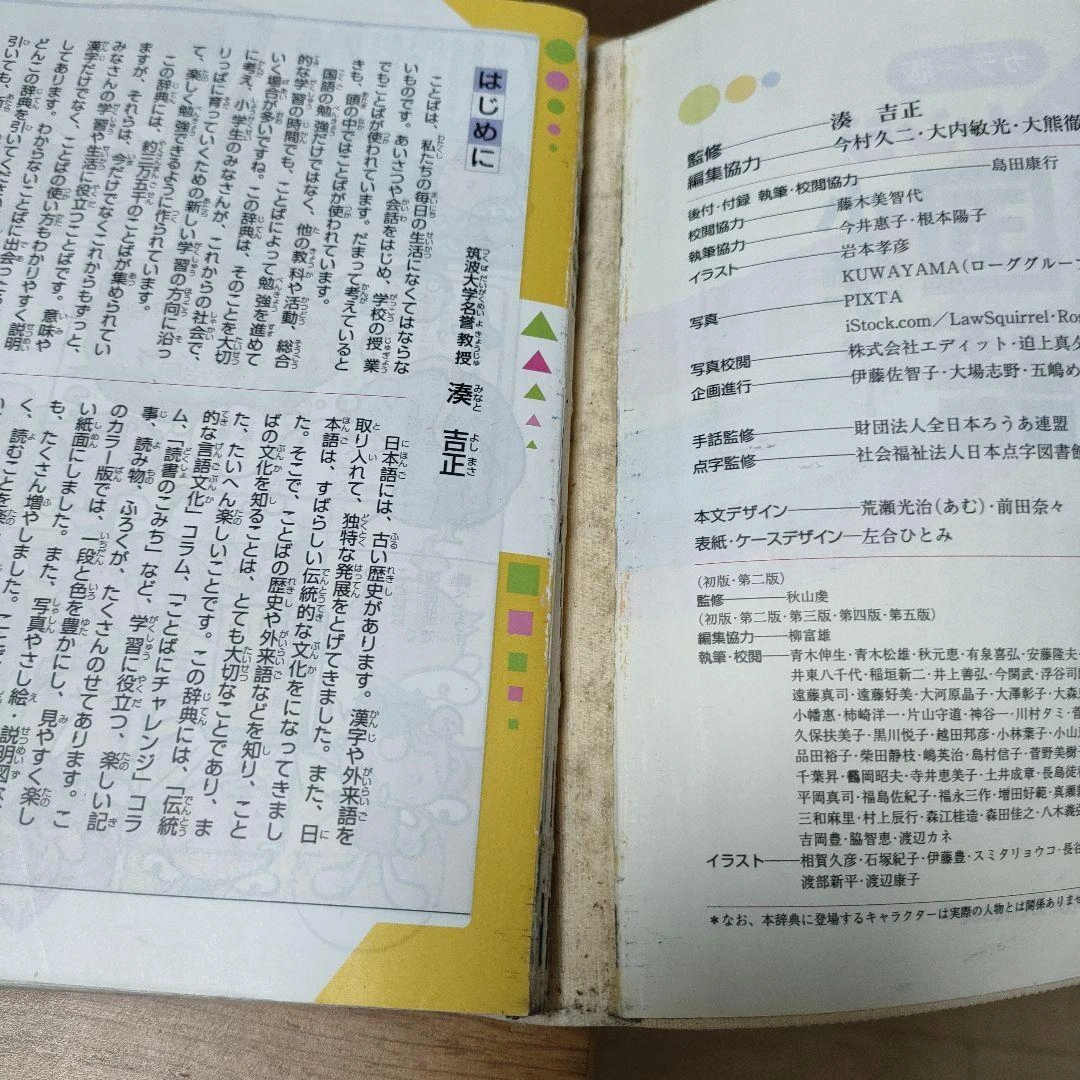 はじめに
筑波大学名誉教授 湊 吉正
ことばは、私たちの毎日の生活になくてはならな
いものです。あいさつや会話をはじめ、学校の授業
でもことばが使われています。だまって考えていると
きも、頭の中ではことばが使われています。
国語の勉強だけではなく、他の教科や活動、総合
的な学習の時間でも、ことばによって勉強を進めて
いく場合が多いですね。この辞典は、そのことを大切
に考え、小学生のみなさんが、これからの社会で、
りっぱに育っていくための新しい学習の方向に沿っ
て、楽しく勉強できるように作られています。
この辞典には、約三万五千のことばが集められてい
ますが、それらは、今だけでなくこれからもずっと、
みなさんの学習や生活に役立つことばです。意味や
漢字だけでなく、ことばの使い方もわかりやすく説明
してあります。わからないことばに出会ったら
どんどんこの辞典を引いてください
引いても、
日本語には、古い歴史があります。漢字や外来語を
取り入れて、独特な発展をとげてきました。また、日
本語は、すばらしい伝統的な文化をになってきまし
た。そこで、ことばの歴史や外来語などを知り、こと
ばの文化を知ることは、とても大切なことであり、ま
た、たいへん楽しいことです。この辞典には、「伝統
的な言語文化」コラム、「ことばにチャレンジ」コラ
ム、「読書のこみち」など、学習に役立つ、楽しい記
事、読み物、ふろくが、たくさんのせてあります。こ
のカラー版では、一段と色を豊かにし、見やすく楽し
い紙面にしました。また、写真やさし絵・説明図な
も、たくさん増やしました。ことご
く、読むことを楽
湊 吉正
監修
編集協力 今村久二・大内敏光・大熊徹
後付・付録 執筆・校閲協力 島田康行
校閲協力 藤木美智代
執筆協力 今井惠子・根本陽子
イラスト 岩本孝彦
KUWAYAMA(ローググルー
写真 PIXTA
iStock.com/LawSquirrel・Ros
写真校閲 株式会社エディット・迫上真
企画進行 伊藤佐智子・大場志野・五嶋め
手話監修 財団法人全日本ろうあ連盟
点字監修 社会福祉法人日本点字図書館
本文デザイン 荒瀬光治(あむ)・前田奈々
表紙・ケースデザイン 左合ひとみ
(初版・第二版)
監修 秋山虔
(初版・第二版・第三版・第四版・第五版)
編集協力 柳富雄
執筆・校閲 青木伸生・青木松雄・秋元恵・有泉喜弘・安藤隆夫・
井東八千代・稲垣新二・井上善弘・今関武・浮谷司
遠藤真司・遠藤好美・大河原晶子・大澤彰子・大森
小幡惠・柿崎洋一・片山守道・神谷一・川村タミ・菅
久保扶美子・黒川悦子・越田邦彦・小林葉子・小山
品田裕子・柴田静枝・嶋英治・島村信子・菅野美樹
千葉昇・鶴岡昭夫・寺井恵美子・土井成章・長島徒
平岡真司・福島佐紀子・福永三作・増田好範・真瀬
三和麻里・村上辰行・森江桂造・森田佳之・八木義
吉岡豊・脇智恵・渡辺カネ
イラスト 相賀久彦・石塚紀子・伊藤豊・スミタリョウコ・長谷
渡部新平・渡辺康子
*なお、本辞典に登場するキャラクターは実際の人物とは関係ありませ